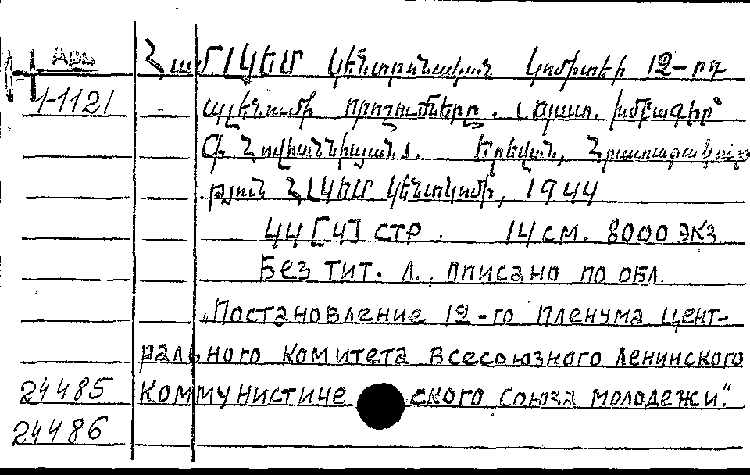 Арм ՀամԼԿԵՄ կենտրոնական կոմիտեի 12-րդ
1-1121 պլենումի որոշումները. (պատ. խմբագիր՝
Հովհաննիսյան). Երևան, Հրատարակչու-
թյուն ՀԼԿԵՄ կենտկոմի, 1944
44 [4] стр. 14 см. 8000 экз
Без тит. л., описано по обл.
„Постановление 12-го пленума цент-
рального комитета Всесоюзного Ленинского
24485 Коммунистиче ского союза молодежи".
24486